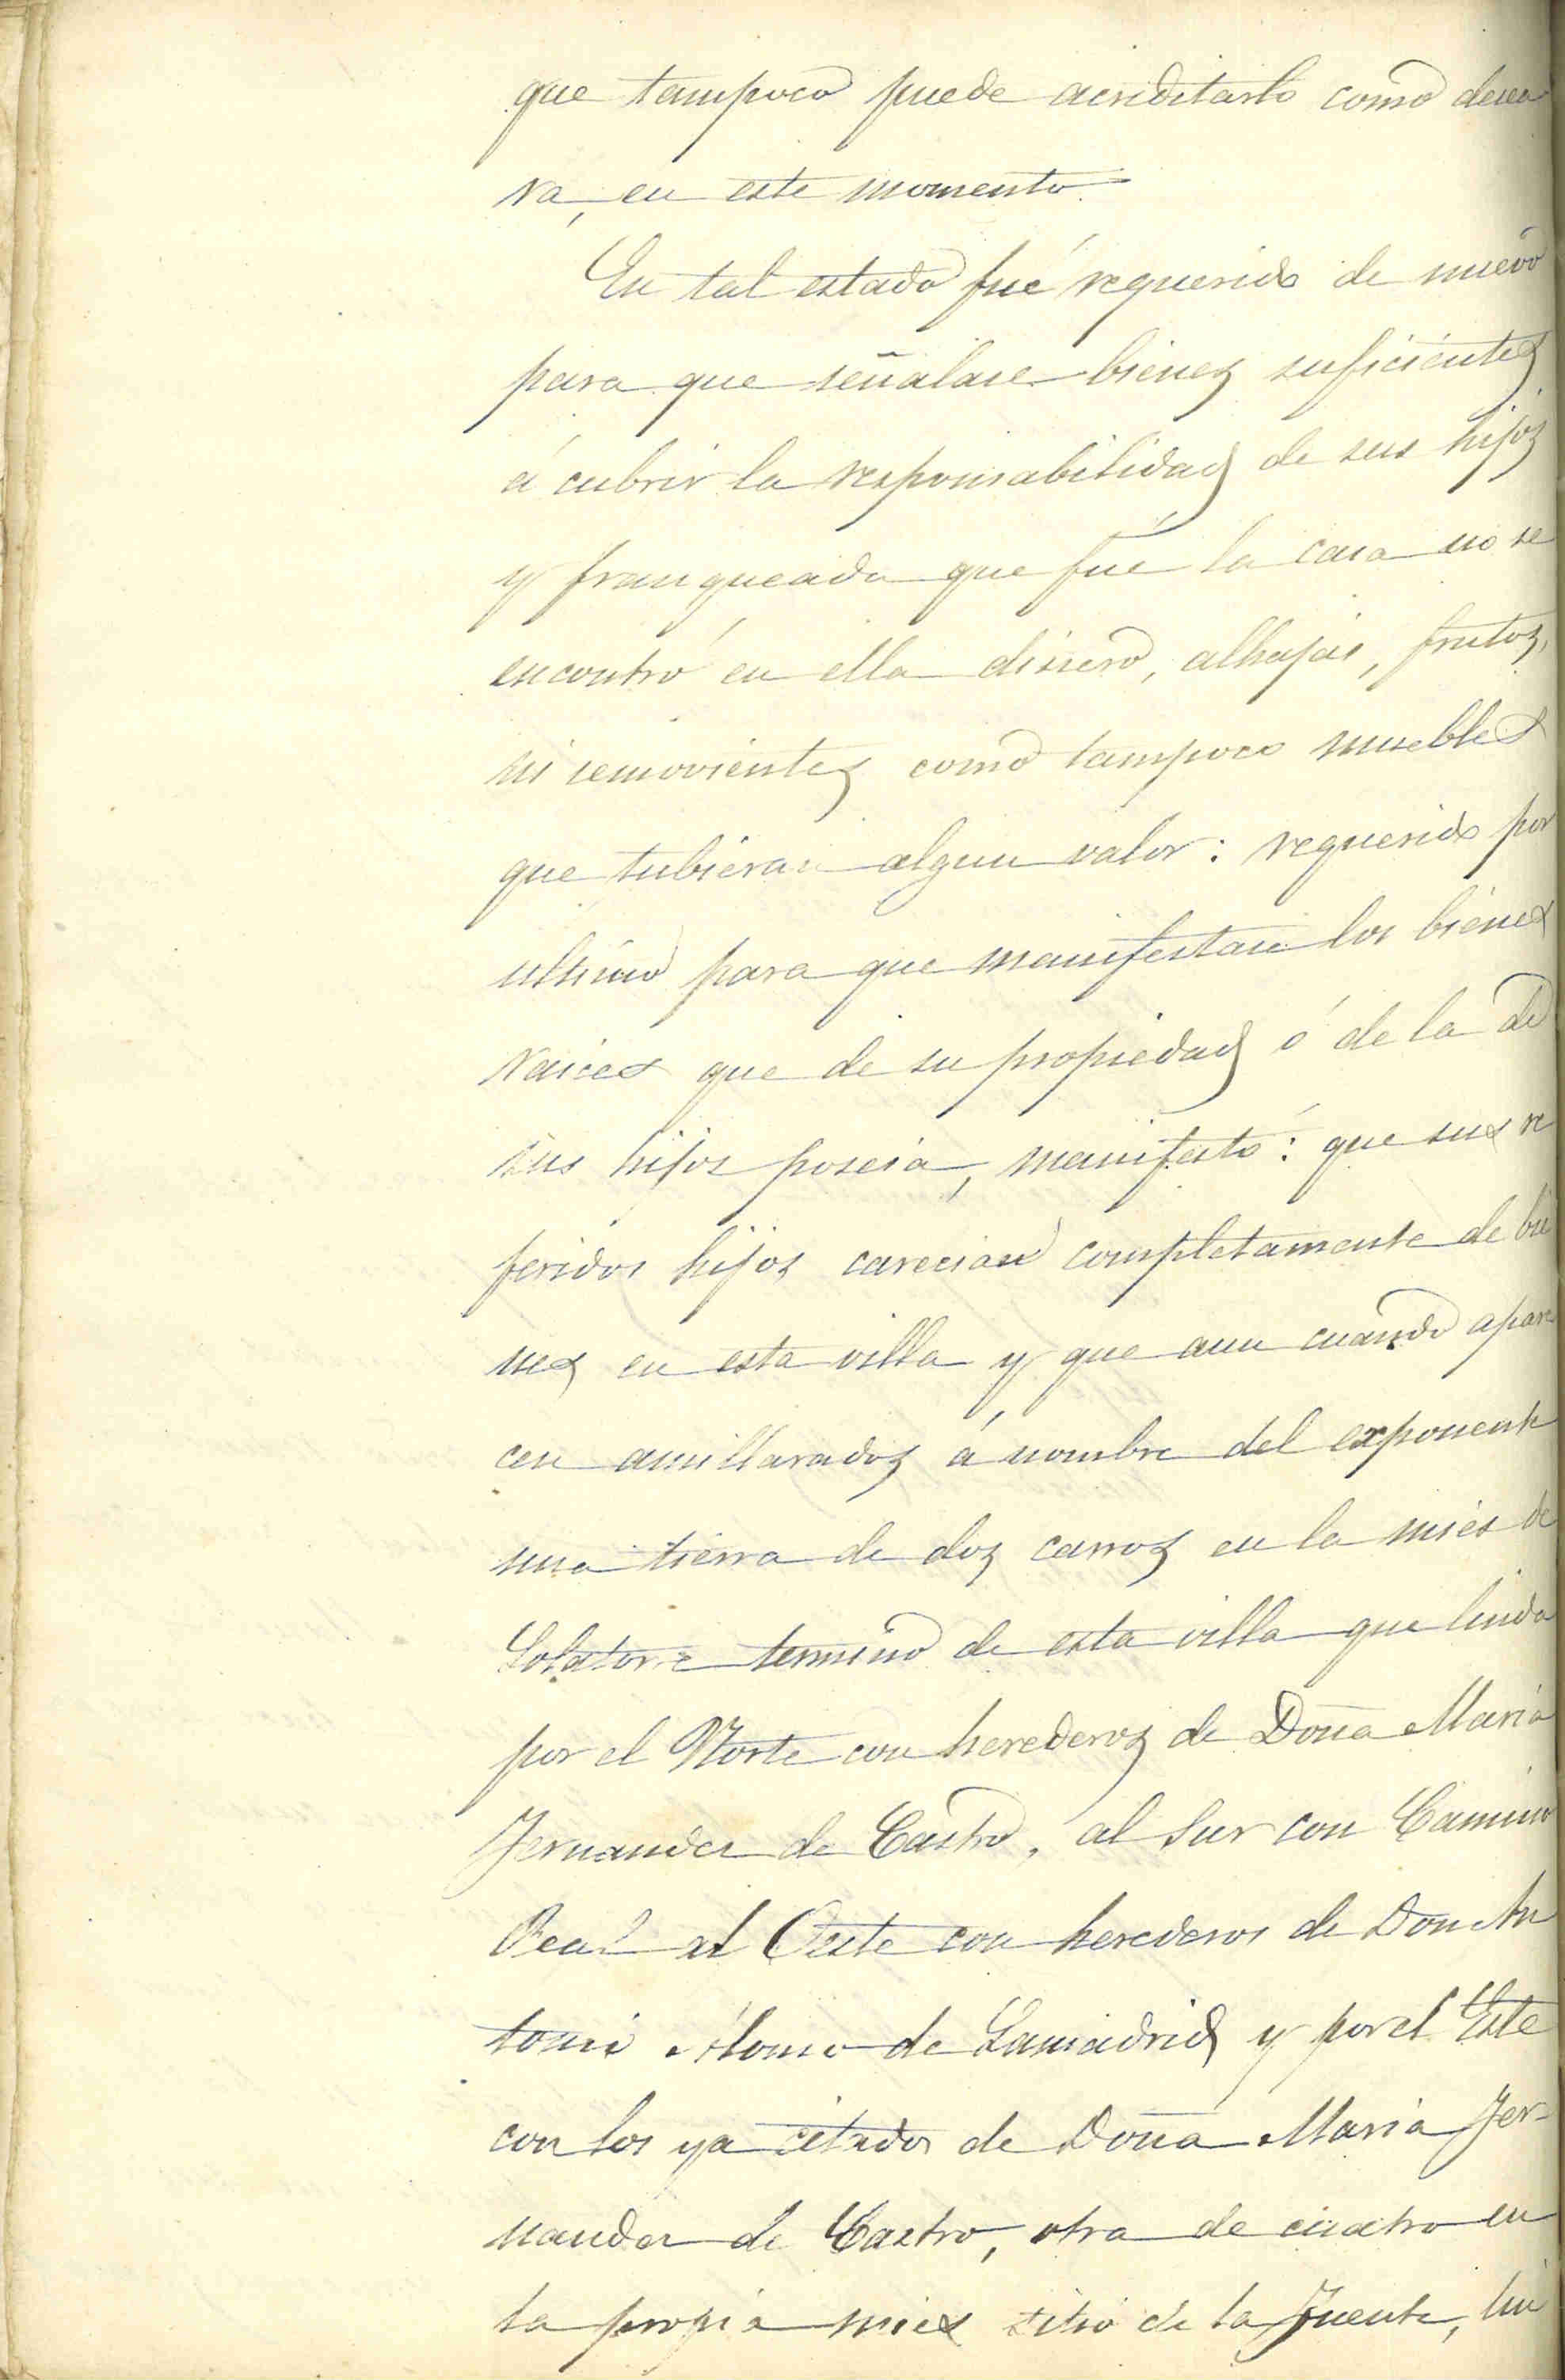 que tampoco puede acreditarlo como desea
ra, en este momento.
En tal estado fué requerido de nuevo
para que señalase bienes suficientes
á cubrir la responsabilidad de sus hijos
y franqueada que fué la casa no se
encontró en ella dinero, alhajas, frutos,
ni semovientes como tampoco muebles
que tubieran algun valor: requerido por
ultimo para que manifestase los bienes
raices que de su propiedad ó de la de
sus hijos poseia, manifestó: que sus re
feridos hijos carecian completamente de bie
nes en esta villa y que aun cuando apare
cen amillarados á nombre del exponente
una tierra de dos carros en la mies de
Solatorre termino de esta villa que linda
por el Norte con herederos de Doña Maria
Fernandez de Castro, al Sur con Camino
Real al Oeste con herederos de Don An
toni Alonso de Lamadrid y por el Este
con los ya citados de Doña Maria Fer-
nandez de Castro, otra de cuatro en
la propia mies sitio de la Fuente, lin